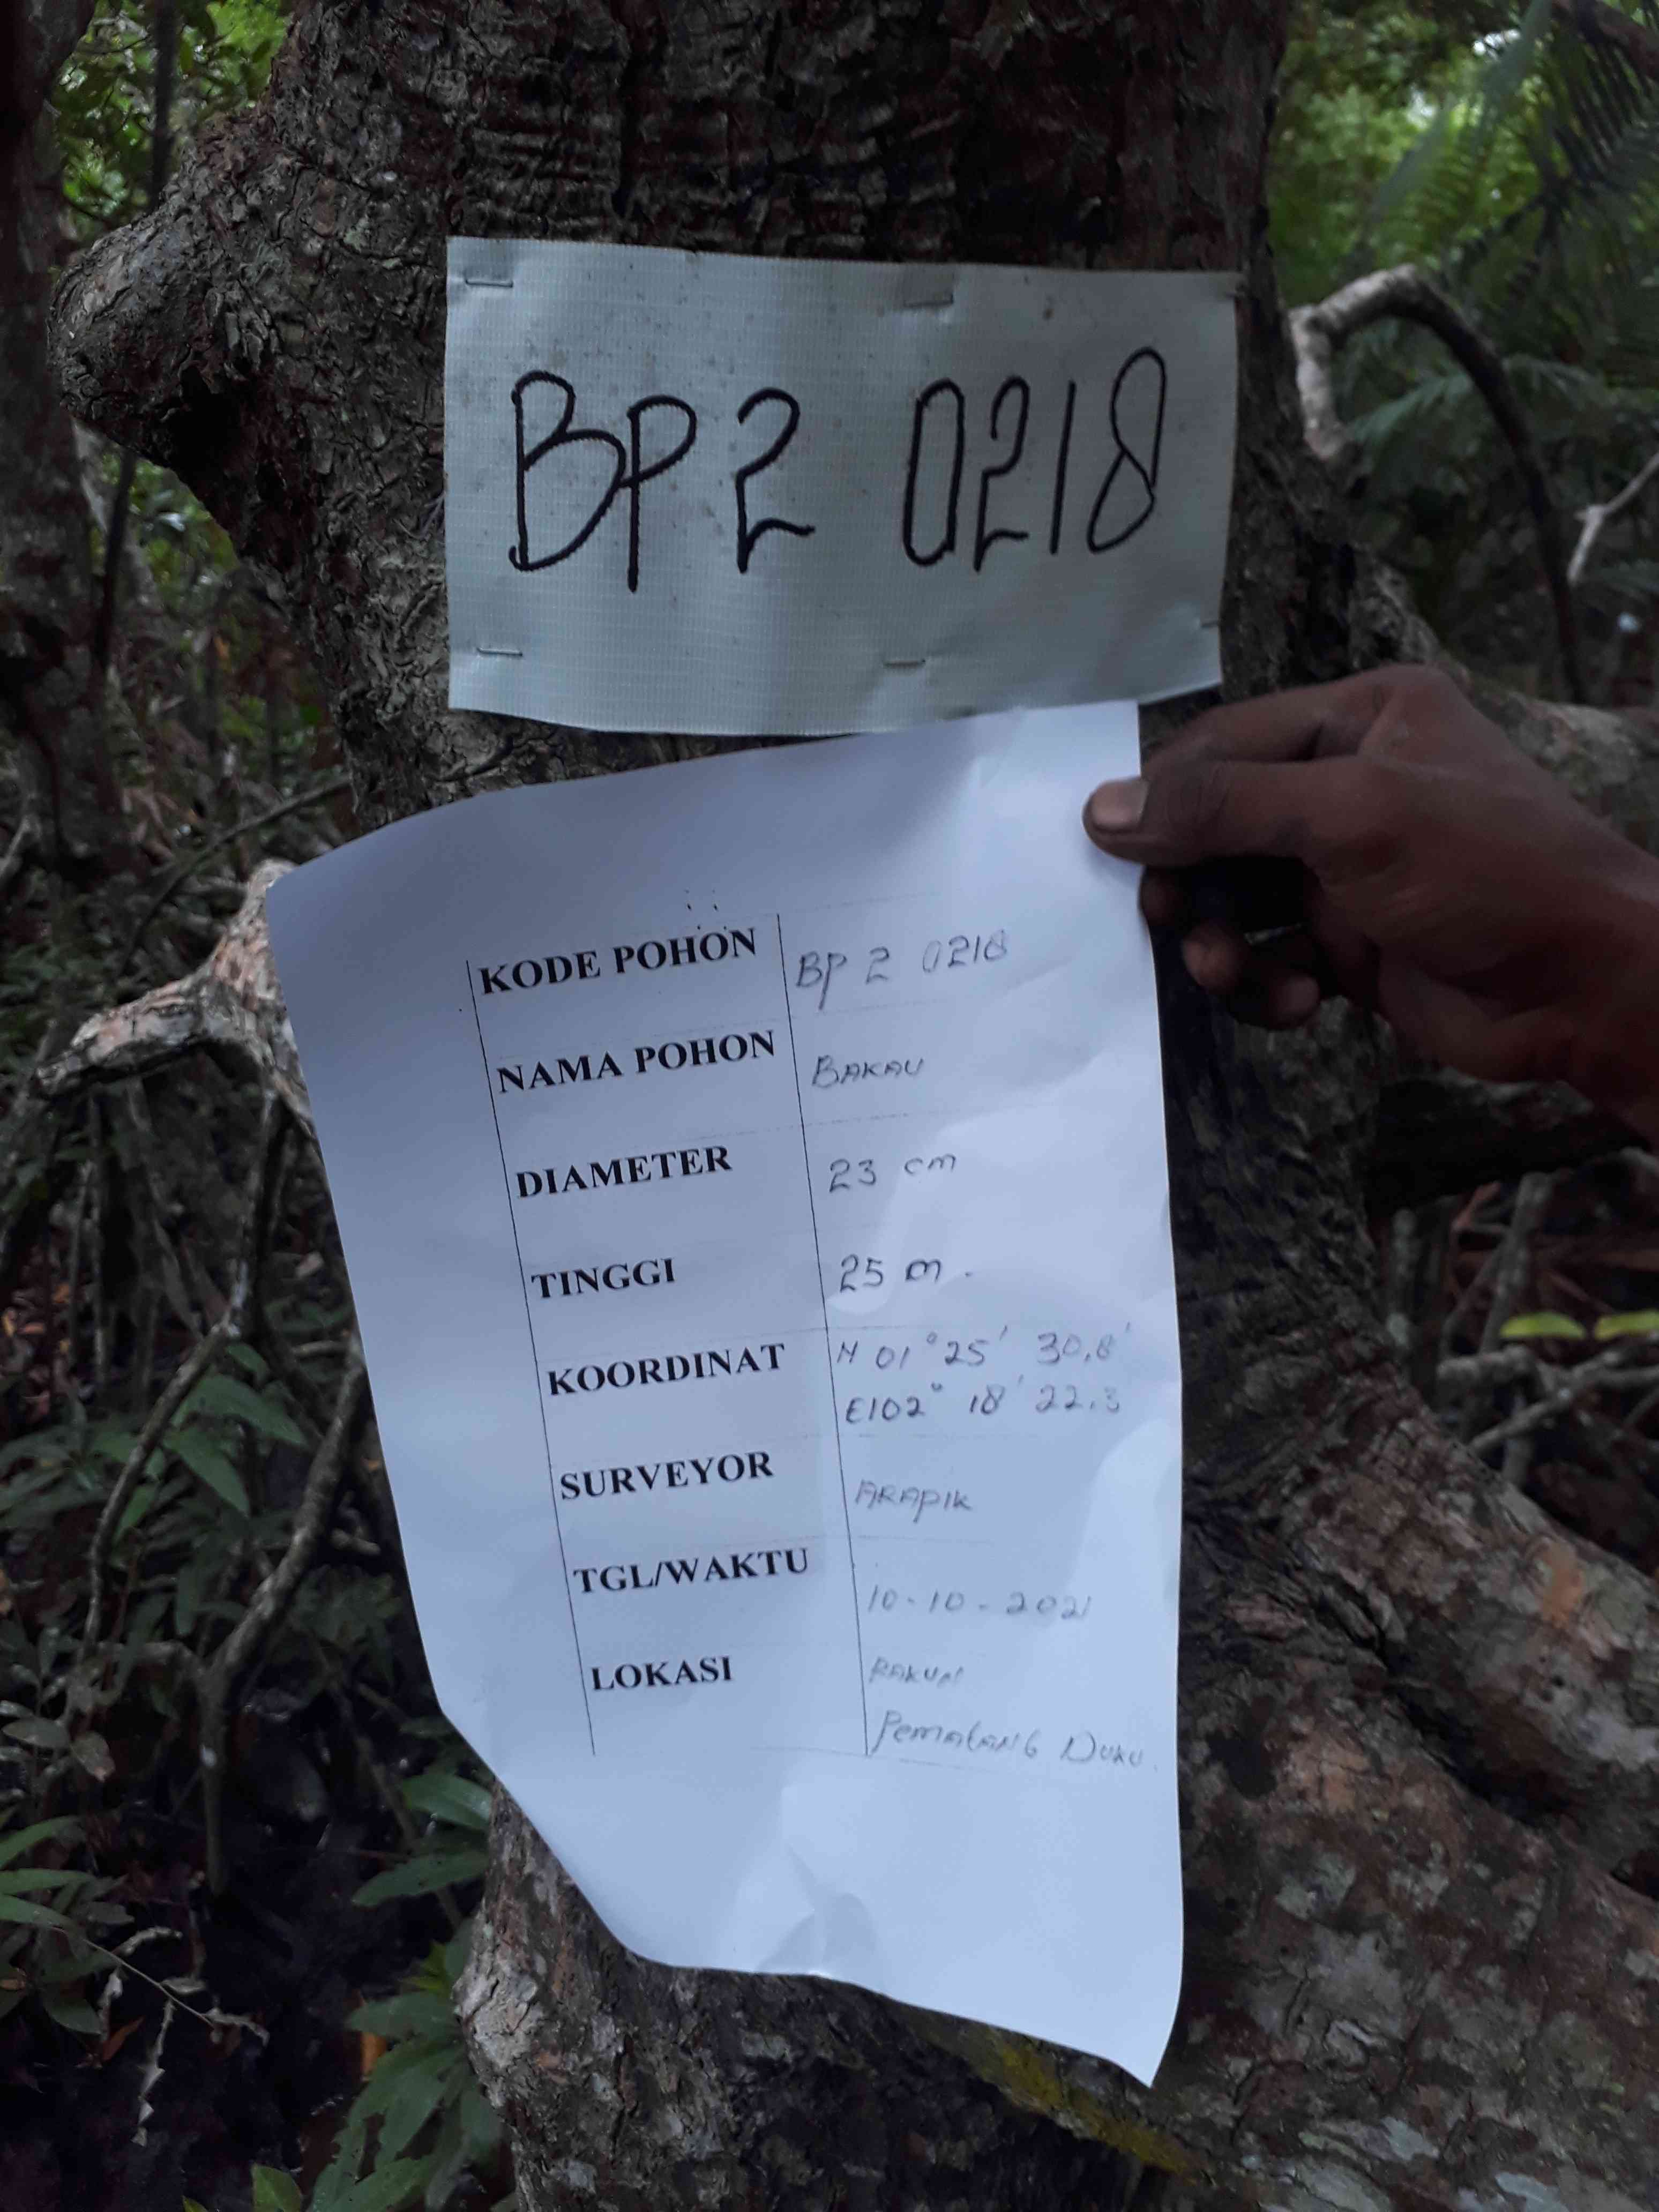 BP 2 0218
KODE POHON BP 2 0218
NAMA POHON BAKAU
DIAMETER 23 cm
TINGGI 25 m.
KOORDINAT N 01° 25' 30,8'
E102° 18' 22.3
SURVEYOR ARAPIK
TGL/WAKTU 10-10-2021
LOKASI
Pematang Duku